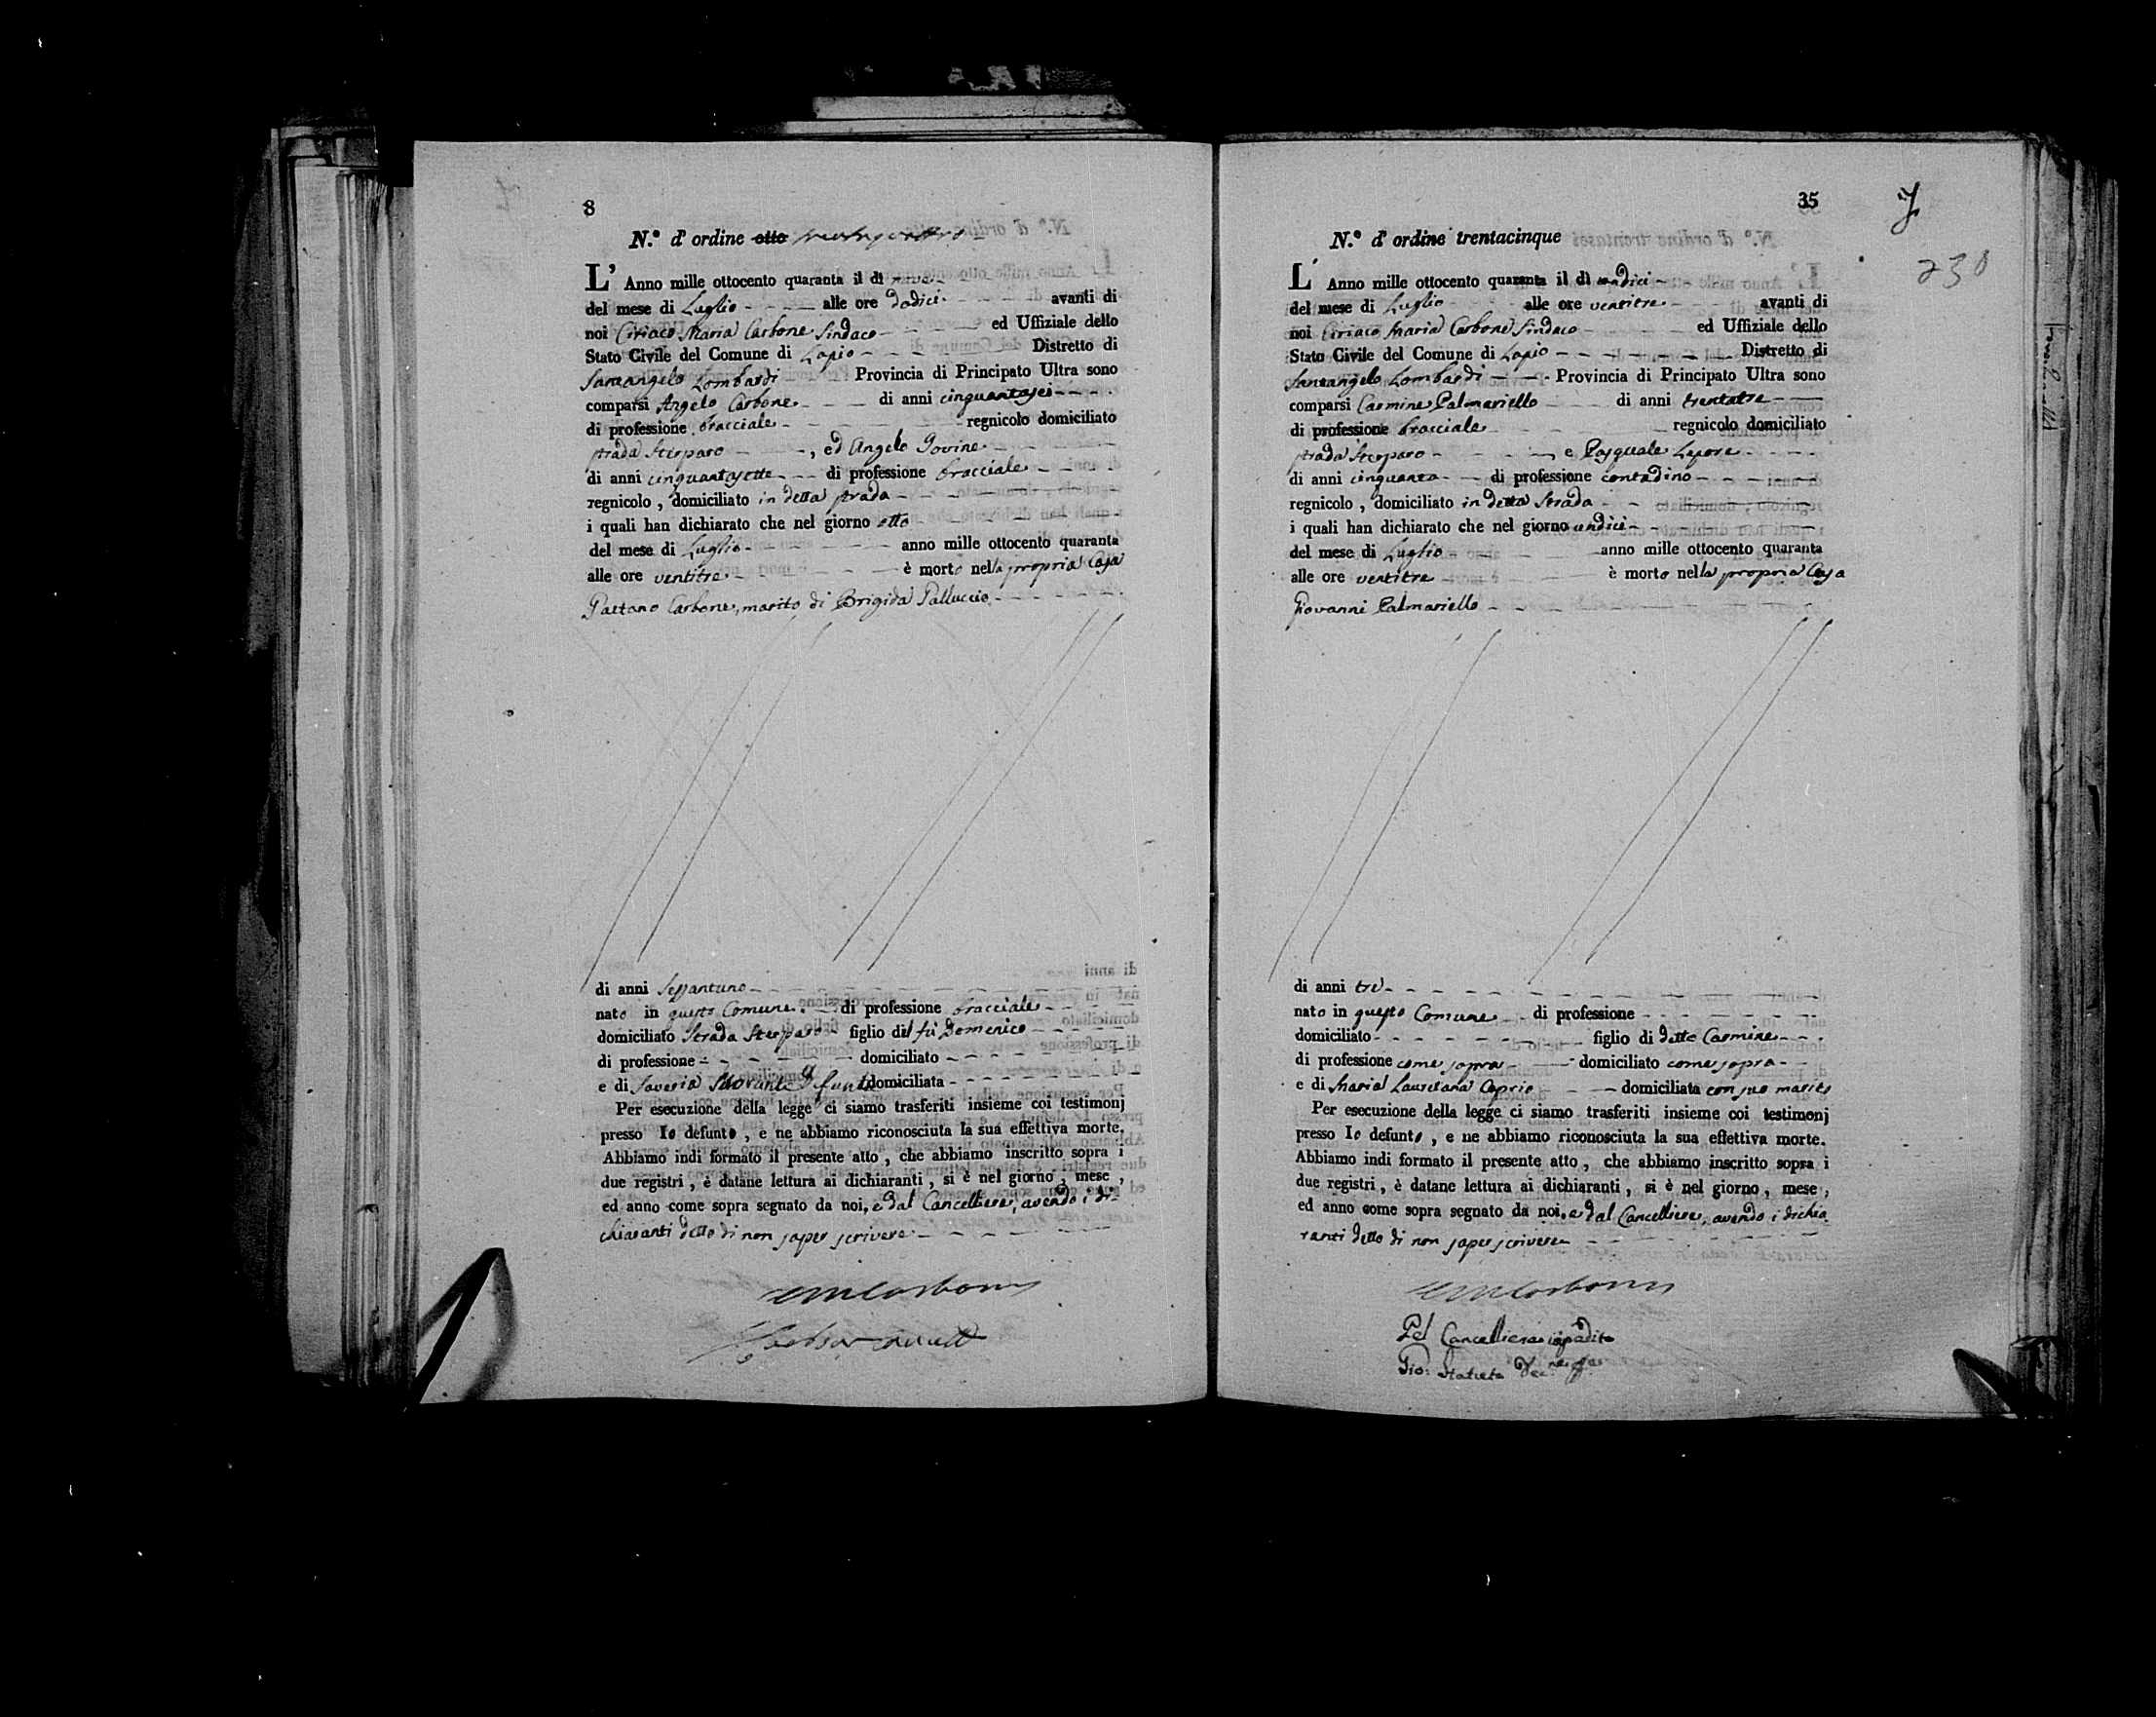 8
N.º d' ordine otto trentaquattro
L' Anno mille ottocento quaranta il dì nove
del mese di Luglio alle ore dodici avanti di
noi Ciriaco Maria Carbone Sindaco ed Uffiziale dello
Stato Civile del Comune di Lapio Distretto di
Santangelo Lombardi Provincia di Principato Ultra sono
comparsi Angelo Carbone di anni cinquantasei
di professione bracciale regnicolo domiciliato
strada Sterparo , ed Angelo Iovine
di anni cinquantasette di professione bracciale
regnicolo , domiciliato in detta strada
i quali han dichiarato che nel giorno otto
del mese di Luglio anno mille ottocento quaranta
alle ore ventitre è morto nella propria Casa
Carbone, marito di Brigida Palluccio
di anni Settantuno
nato in questo Comune di professione bracciale
domiciliato Strada Sterparo figlio del fù Domenico
di professione domiciliato
e di Saveria defunta domiciliata
Per esecuzione della legge ci siamo trasferiti insieme coi testimonj
presso lo defunto , e ne abbiamo riconosciuta la sua effettiva morte.
Abbiamo indi formato il presente atto , che abbiamo inscritto sopra i
due registri , è datane lettura ai dichiaranti , si è nel giorno , mese ,
ed anno come sopra segnato da noi, e dal Cancelliere, avendo i di-
chiaranti detto di non saper scrivere
CM Carbone
35
7
230
N.º d' ordine trentacinque
L' Anno mille ottocento quaranta il dì undici
del mese di Luglio alle ore ventitre avanti di
noi Ciriaco Maria Carbone Sindaco ed Uffiziale dello
Stato Civile del Comune di Lapio Distretto di
Santangelo Lombardi Provincia di Principato Ultra sono
comparsi Carmine Palmariello di anni trentatre
di professione bracciale regnicolo domiciliato
strada Sterparo e Pasquale Lepore
di anni cinquanta di professione contadino
regnicolo , domiciliato in detta Strada
i quali han dichiarato che nel giorno undici
del mese di Luglio anno mille ottocento quaranta
alle ore ventitre è morto nella propria Casa
Giovanni Palmariello
di anni tre
nato in questo Comune di professione
domiciliato figlio di detto Carmine
di professione come sopra domiciliato come sopra
e di Maria Lauretana Caprio domiciliata con suo marito
Per esecuzione della legge ci siamo trasferiti insieme coi testimonj
presso lo defunto , e ne abbiamo riconosciuta la sua effettiva morte.
Abbiamo indi formato il presente atto , che abbiamo inscritto sopra i
due registri , è datane lettura ai dichiaranti , si è nel giorno , mese ,
ed anno come sopra segnato da noi, e dal Cancelliere, avendo i dichia
ranti detto di non saper scrivere
CM Carbone
Pel Cancelliere impedito
Gio: